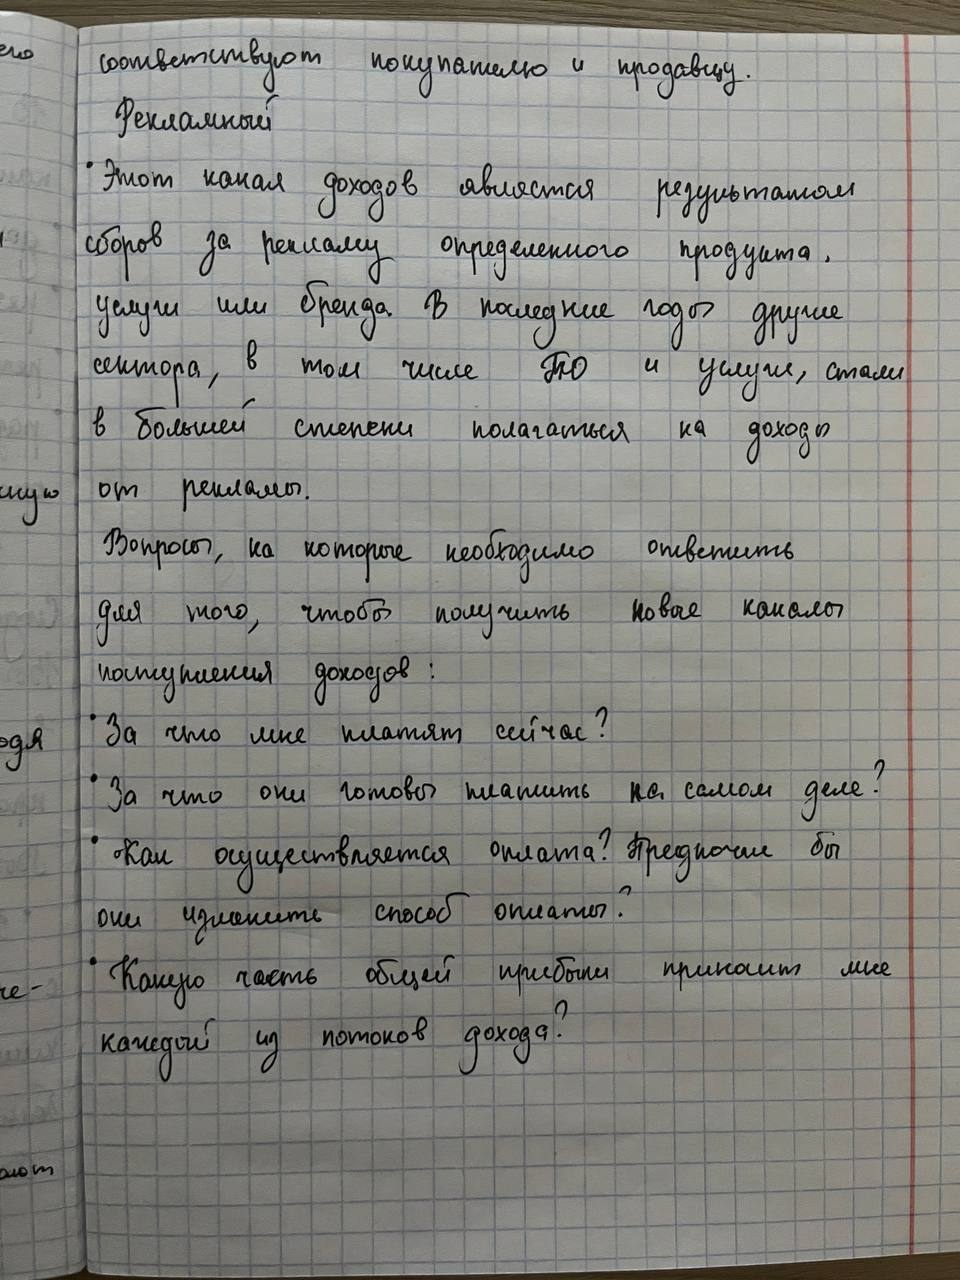 соответствуют покупателю и продавцу.
Рекламный
• Этот канал доходов является результатом
сборов за рекламу определенного продукта,
услуги или бренда. В последние годы другие
сектора, в том числе ПО и услуги, стали
в большей степени полагаться на доходы
от рекламы.
Вопросы, на которые необходимо ответить
для того, чтобы получить новые каналы
поступления доходов:
• За что мне платят сейчас?
• За что они готовы платить на самом деле?
• Как осуществляется оплата? Предпочли бы
они изменить способ оплаты?
• Какую часть общей прибыли приносит мне
каждый из потоков дохода?